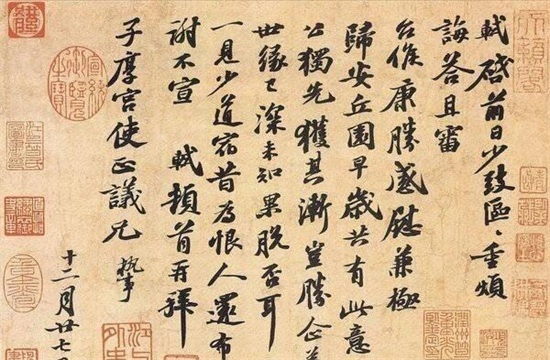 軾啓前日少致區〻重煩
誨答且審
台候康勝感慰兼極
歸安丘園早歲共有此意
公獨先獲其漸豈勝企
世緣已深未知果脫否耳
一見少道宿昔為恨人還布
謝不宣 軾頓首再拜
子厚宮使正議兄 執事
十二月廿七